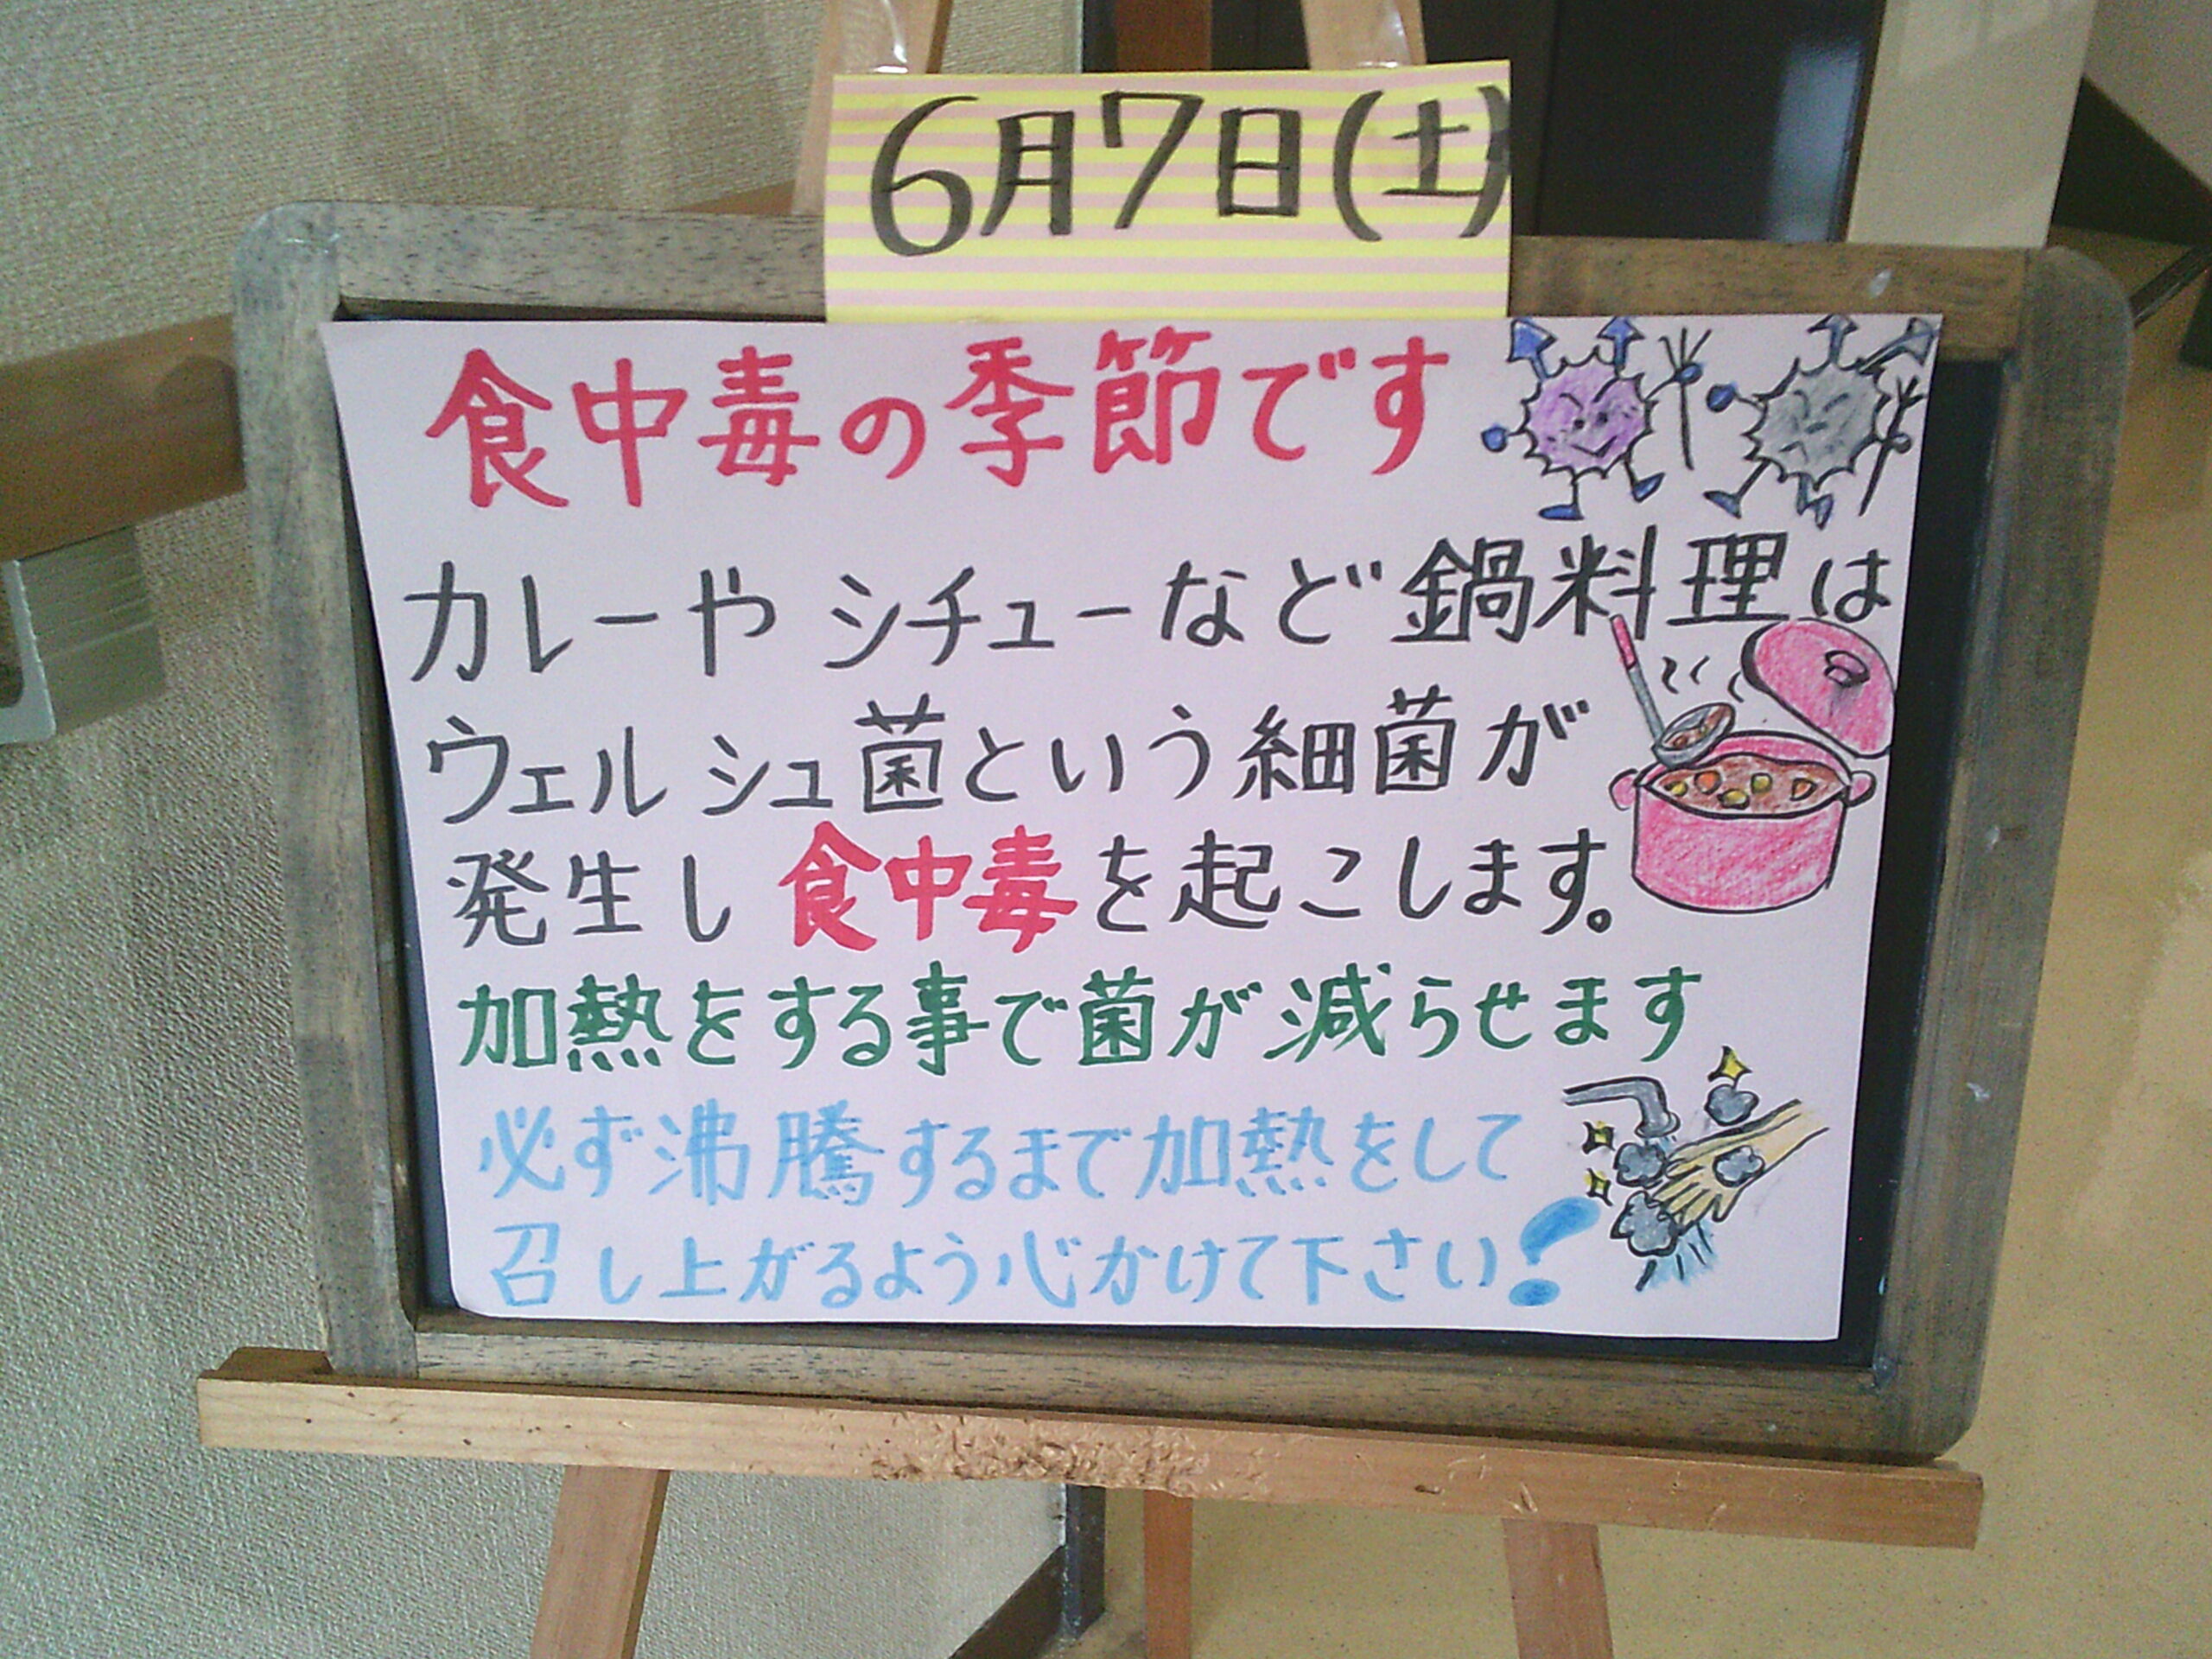 6月7日(土)
食中毒の季節です
カレーやシチューなど鍋料理は
ウェルシュ菌という細菌が
発生し食中毒を起こします。
加熱をする事で菌が減らせます
必ず沸騰するまで加熱をして
召し上がるよう心がけて下さい!